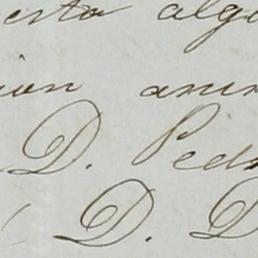 erta algu
ion anun
D. Pedr
D. D